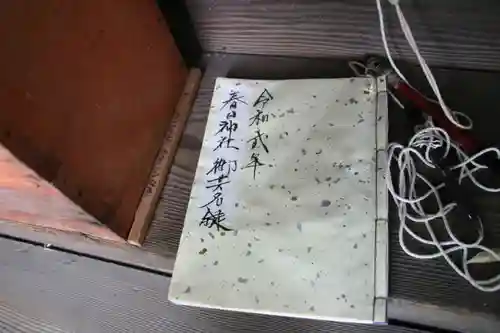 令和弐年
春日神社御芳名録